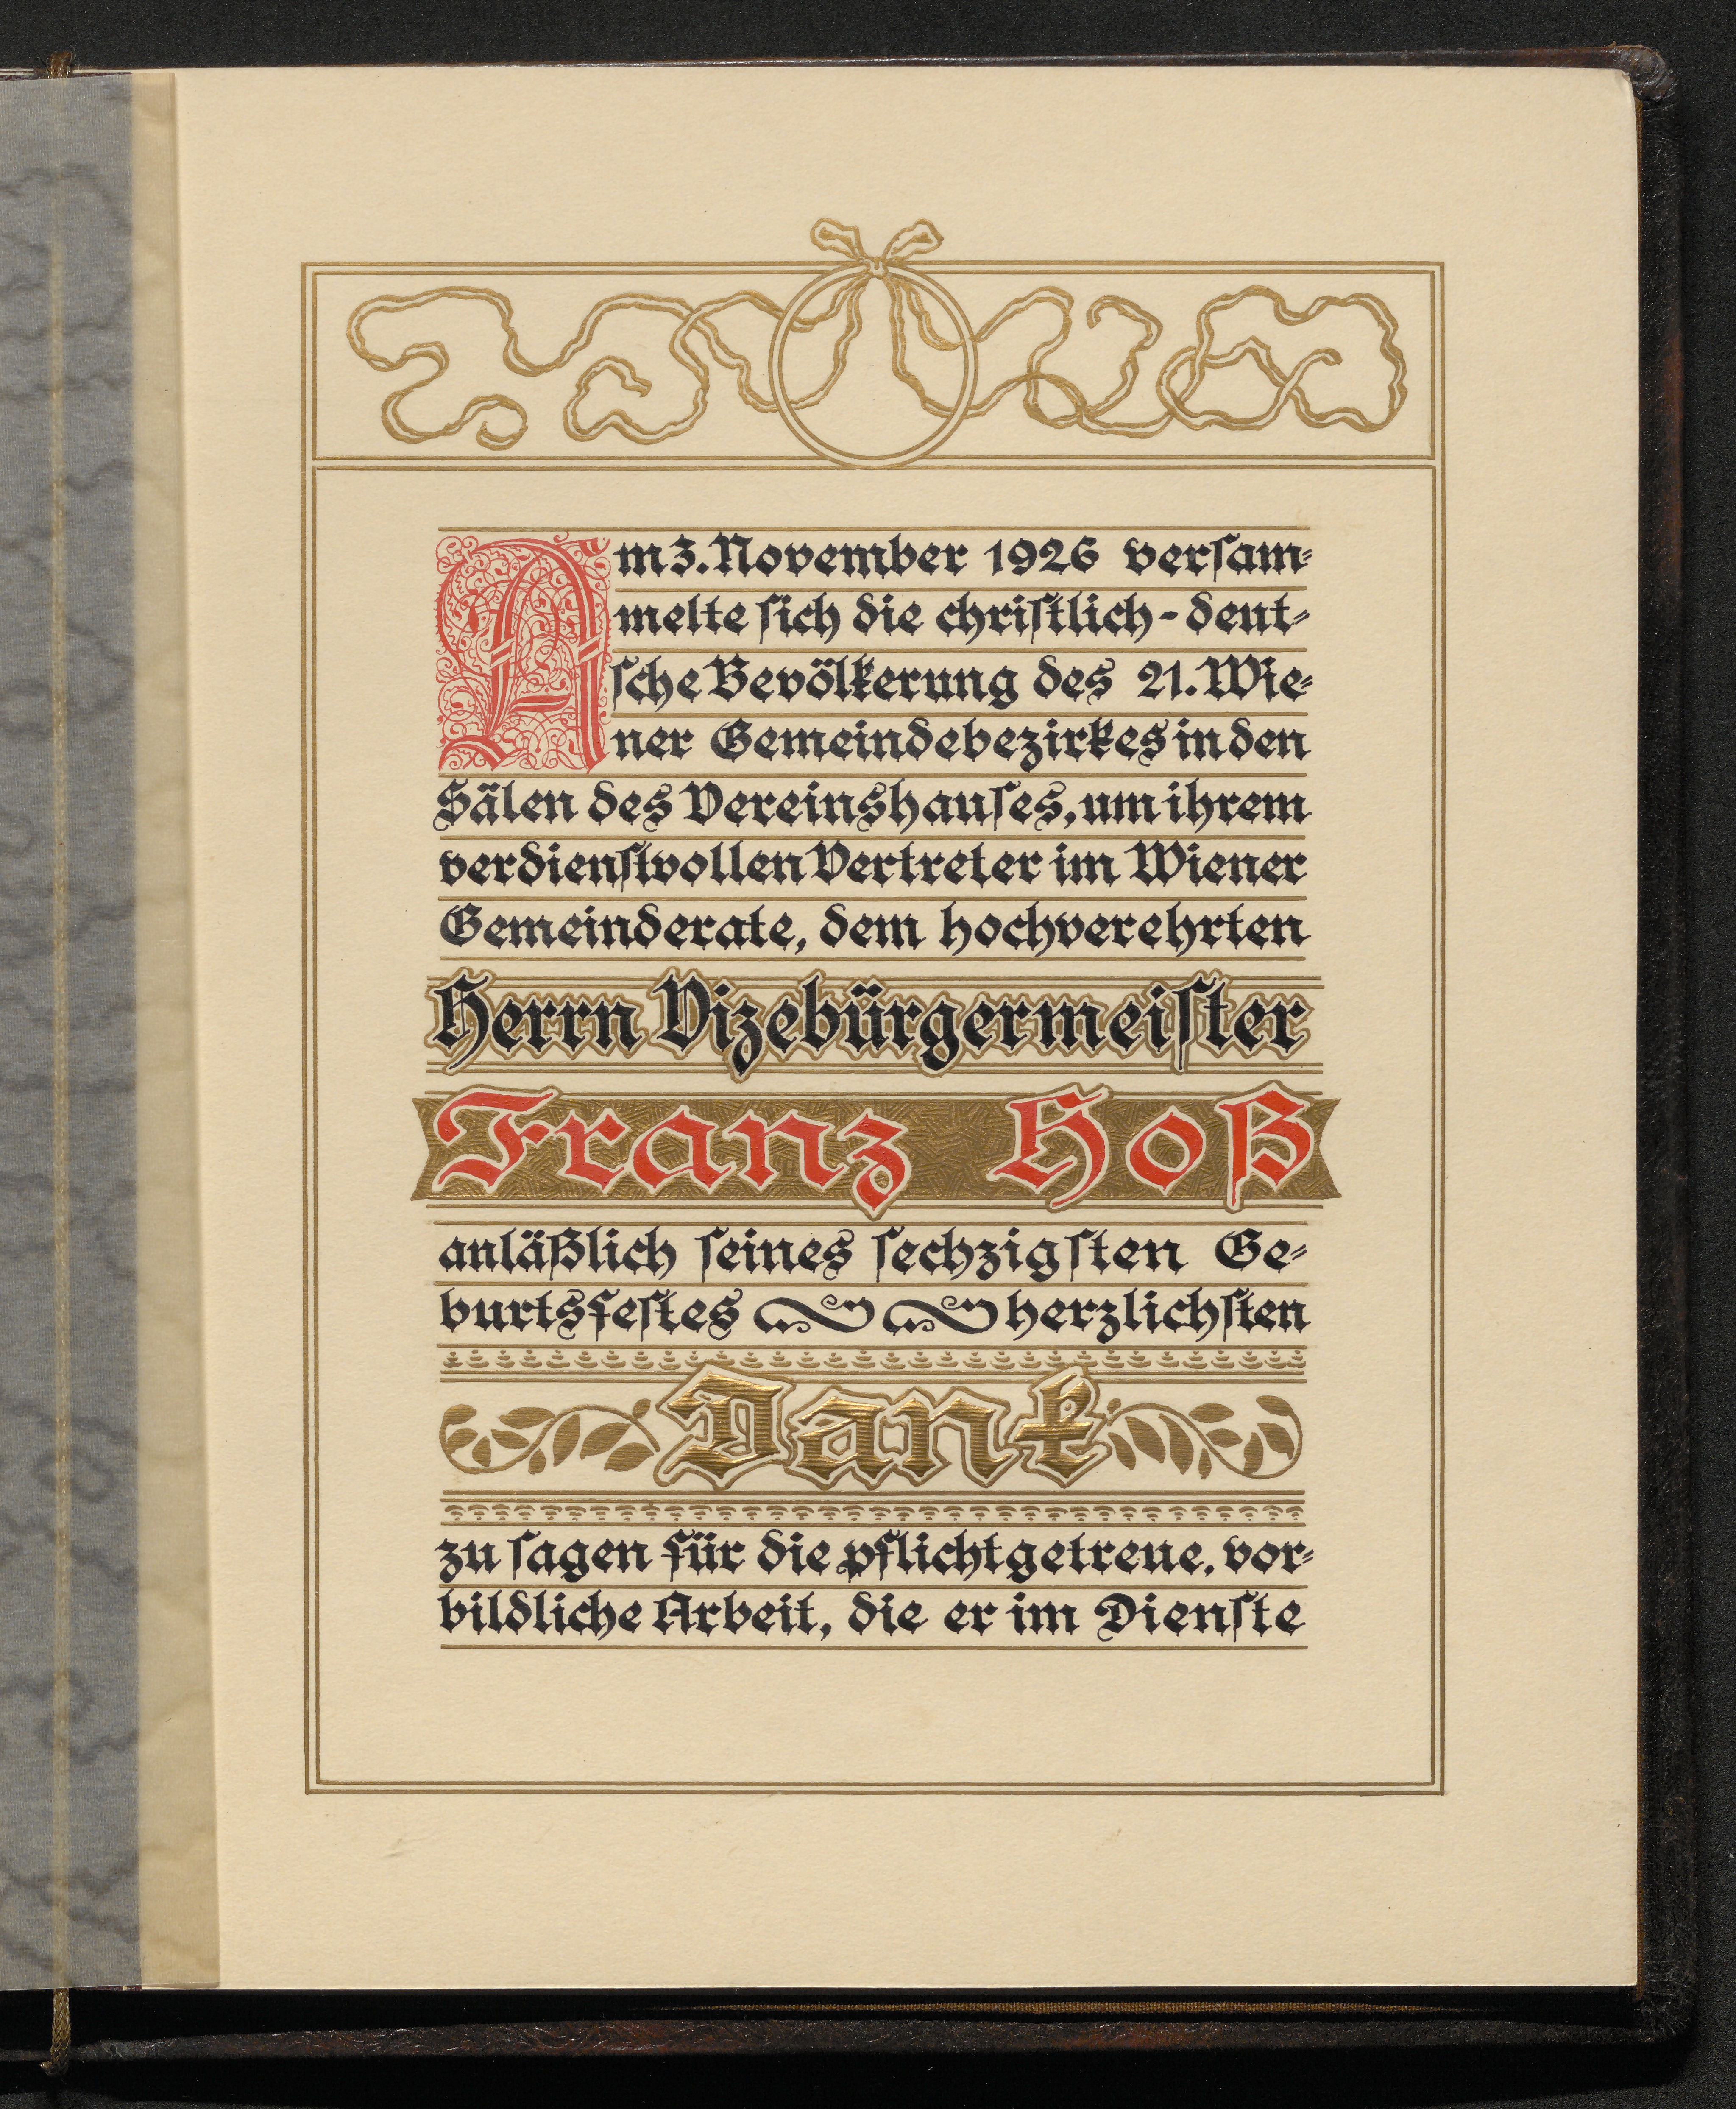 Am 3. November 1926 versam-
melte sich die christlich-deut-
sche Bevölkerung des 21. Wie-
ner Gemeindebezirkes in den
Sälen des Vereinshauses, um ihrem
verdienstvollen Vertreter im Wiener
Gemeinderate, dem hochverehrten
Herrn Vizebürgermeister
Franz Hoß
anläßlich seines sechzigsten Ge-
burtsfestes herzlichsten
Dank
zu sagen für die pflichtgetreue, vor-
bildliche Arbeit, die er im Dienste